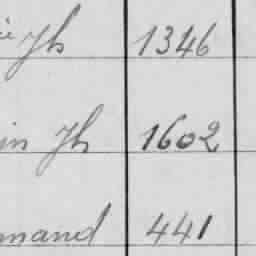 ie Jh 1346
in Jh 1602
mand 441